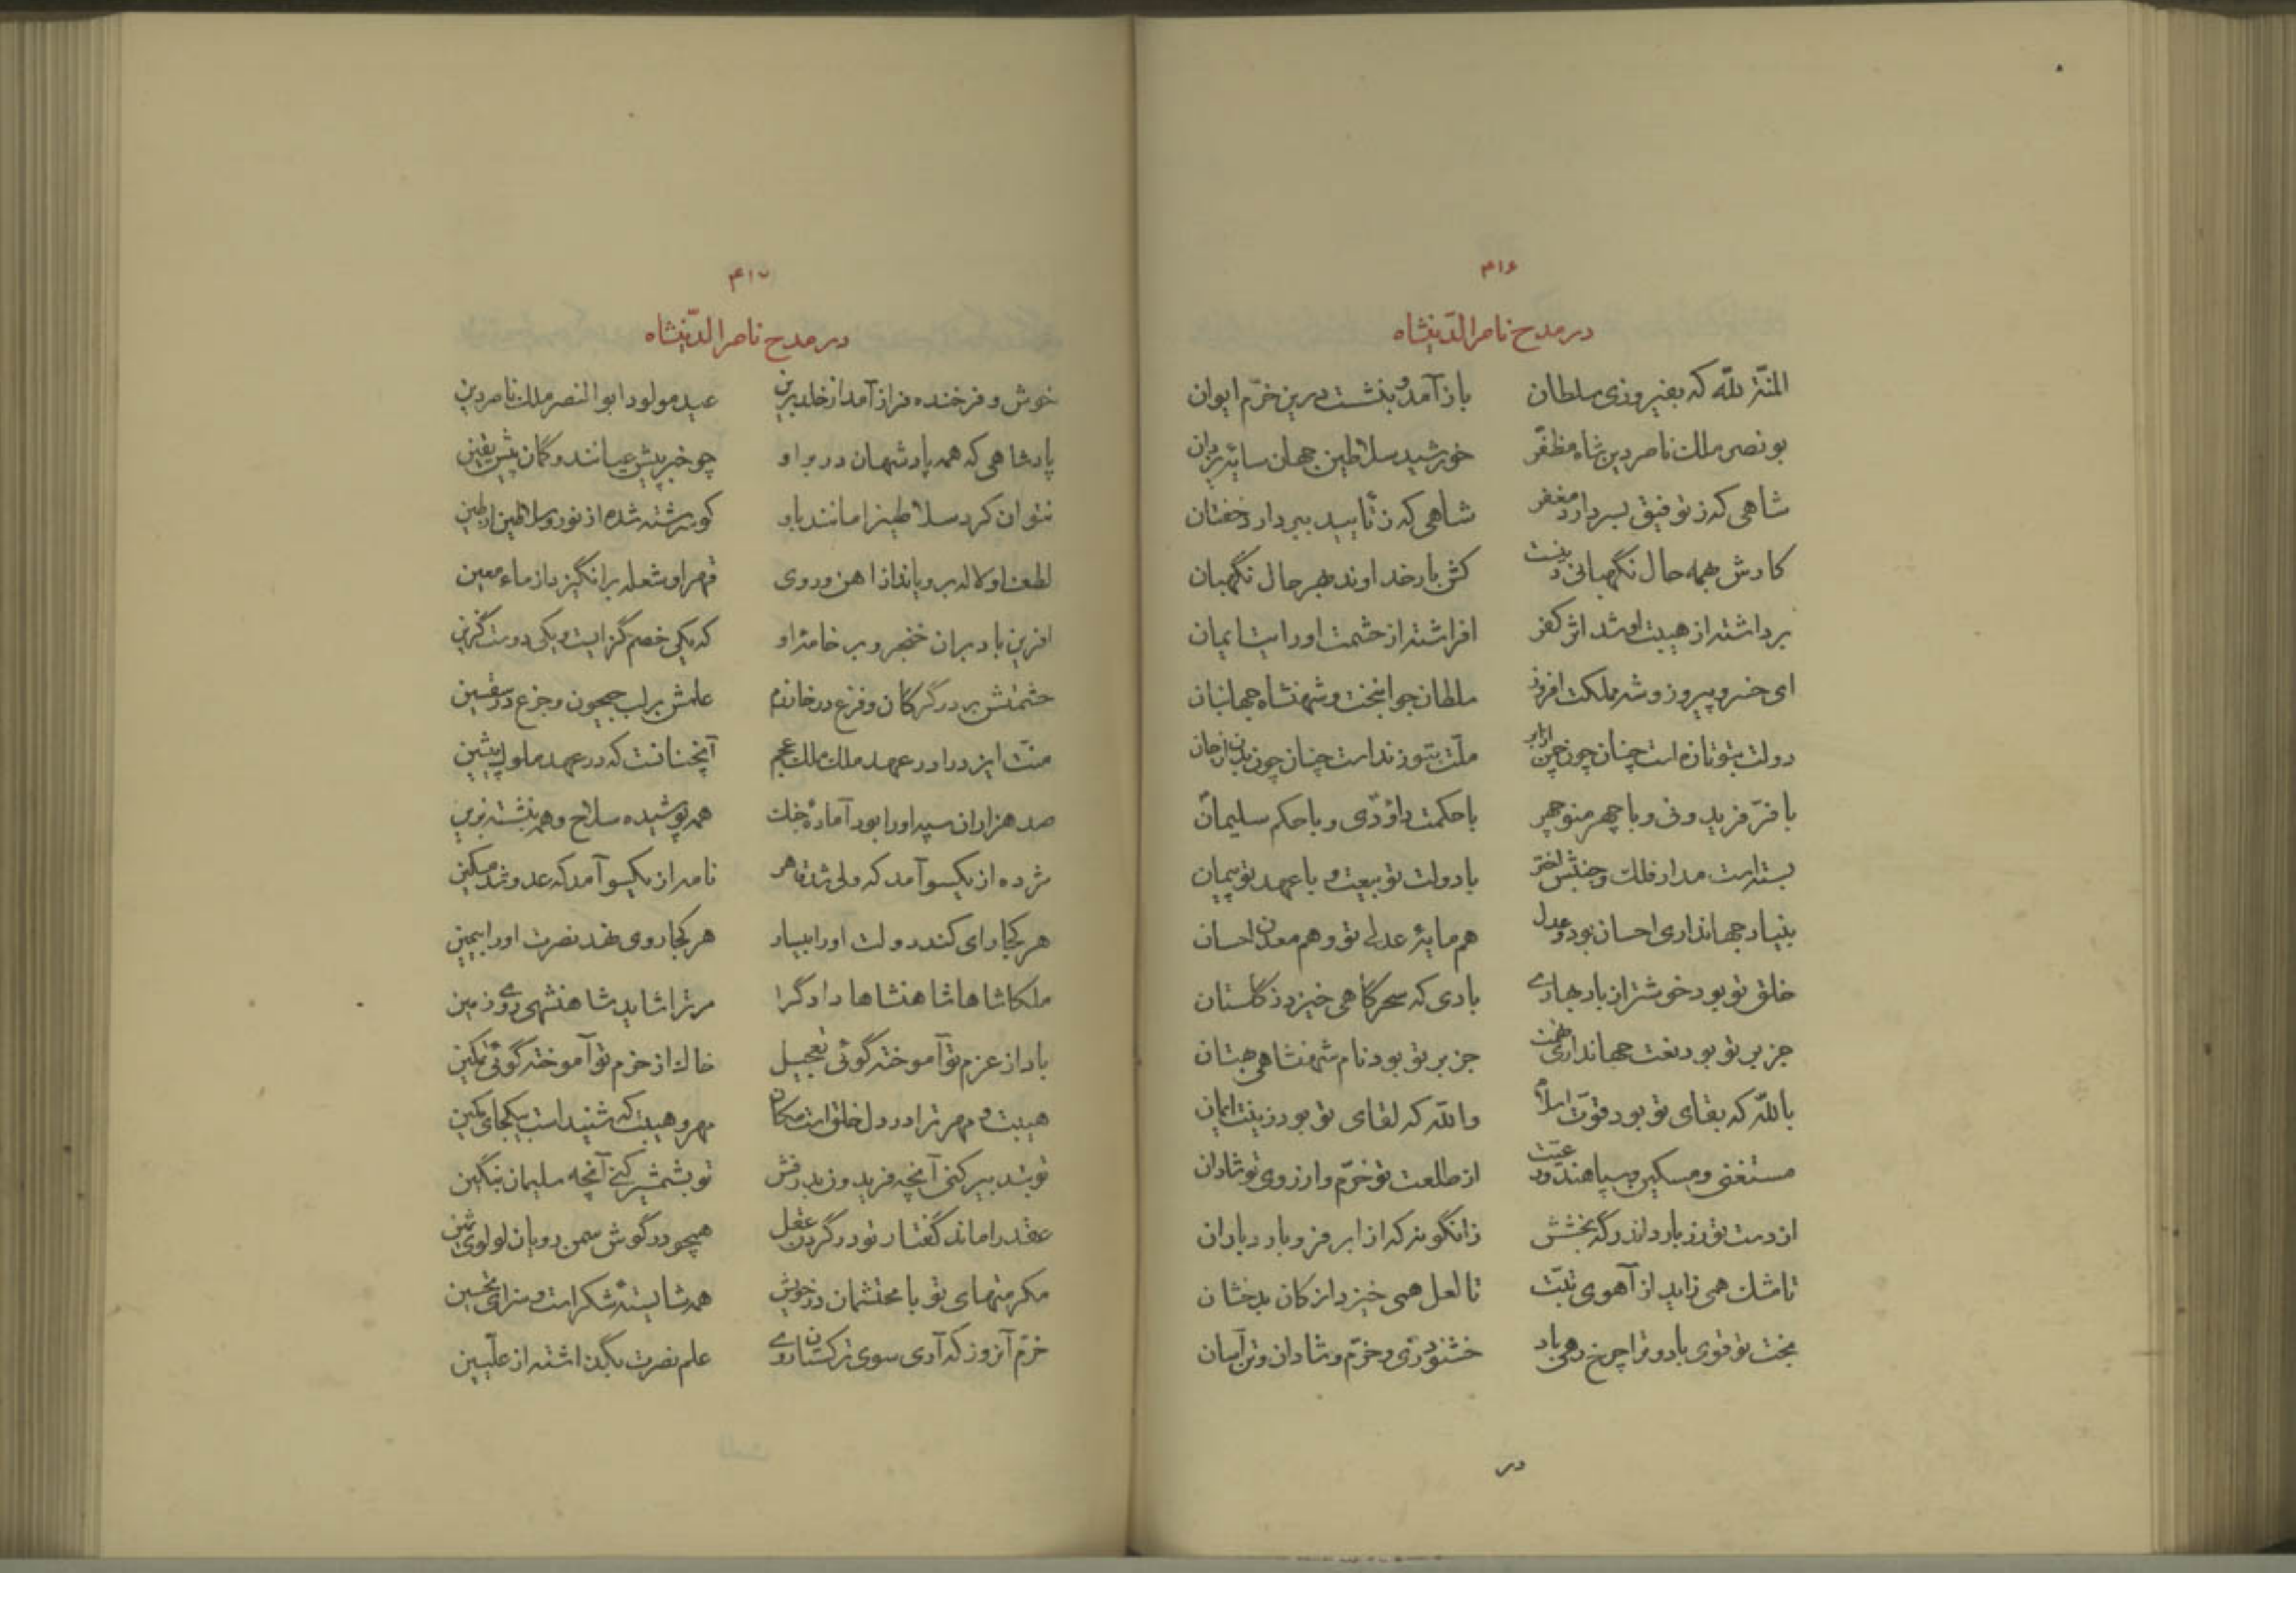 ۴۱۶
در مدح ناصرالدینشاه
المنة لله که بفیروزی سلطان باز آمد و بنشست درین خرّم ایوان
بونصر ملک ناصر دین شاه مظفّر خورشید سلاطین جهان سایهٔ یزدان
شاهی که ز توفیق بسر دارد مغفر شاهی که ز تأیید ببر دارد خفتان
کارش بهمه حال نگهبانی دینست کش بار خداوند بهر حال نگهبان
برداشته از هیبت او شد اثر کفر افراشته از حشمت او رایت ایمان
ای خسرو پیروز و شه مملکت افروز سلطان جوانبخت و شهنشاه جهانبان
دولت بتو تازه است چنان چون چمن از ابر ملّت بتو زنداست چنان چون بدن از جان
با فرّ فریدونی و با چهر منوچهر با حکمت داودی و با حکم سلیمان
بسته است مدار فلک و جنبش اختر با دولت تو بیعت و با عهد تو پیمان
بنیاد جهانداری احسان بود و عدل هم مایهٔ عدلی تو و هم معدن احسان
خلق تو بود خوشتر از باد بهاری بادی که سحرگاهی خیزد ز گلستان
جز بر تو بود نعت جهانداری تهمت جز بر تو بود نام شهنشاهی بهتان
بالله که بقای تو بود قوّت اسلام والله که لقای تو بود زینت ایمان
مستغنی و مسکین و سپاهند و رعیّت از طلعت تو خرّم و از روی تو شادان
از دست تو زر بارد اندر گه بخشش زانگونه که از ابر فرو بارد باران
تا مشک همی زاید از آهوی تبّت تا لعل همی خیزد از کان بدخشان
بخت تو قوی باد و ترا چرخ رهی باد خشنود زی و خرّم و شادان و تن آسان
در
۴۱۷
در مدح ناصرالدینشاه
خوش و فرخنده فراز آمد از خلد برین عید مولود ابوالنصر ملک ناصر دین
پادشاهی که همه پادشهان در بر او چو خبر پیش عیانند و گمان پیش یقین
نتوان کرد سلاطین را مانند باو کو سرشته شده از نور و سلاطین از طین
لطف او لاله برویاند از اهن و روی قهر او شعله برانگیزد از ماء معین
افرین باد بران خنجر و بر خامهٔ او که یکی خصم گزایست و یکی دوست گزین
حشمتش بر در گرگان و فزع در خوارزم علمش بر لب جیحون و جزع در سقسین
منّت ایزد را در عهد ملک ملک عجم آنچنانست که در عهد ملوک پیشین
صد هزاران سپه او را بود آمادهٔ جنگ همه پوشیده سلاح و همه بنشسته بزین
مژده از یکسو آمد که ولی شد قاهر نامه از یکسو آمد که عدو شد مسکین
هر کجا رای کند دولت او را بیسار هر کجا روی نهد نصرت او را بیمین
ملکا شاها شاهنشاها دادگرا مر ترا شاید شاهنشهی روی زمین
باد از عزم تو آموخته گوئی تعجیل خاک از حزم تو آموخته گوئی تمکین
هیبت و مهر ترا در دل خلق است مکان مهر و هیبت که شنیداست بیکجای مکین
تو بتدبیر کنی آنچه فریدون بدرفش تو بشمشیر کنی آنچه سلیمان بنگین
عقد را ماند گفتار تو در گردن عقل همچو در گوش سمن رویان لولوی ثمین
مکرمتهای تو با محتشمان در خویش همه شایستهٔ شکر است و سزای تحسین
خرّم آنروز که آری سوی ترکستان روی علم نصرت بگذاشته از علّیین